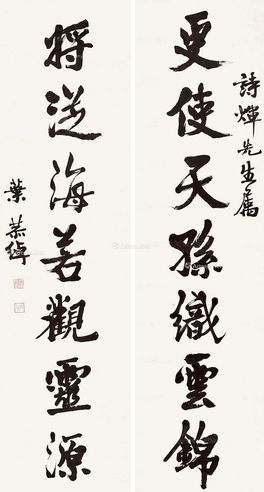 詩煇先生屬
更使天孫織雲錦
將從海若觀靈源
葉恭綽